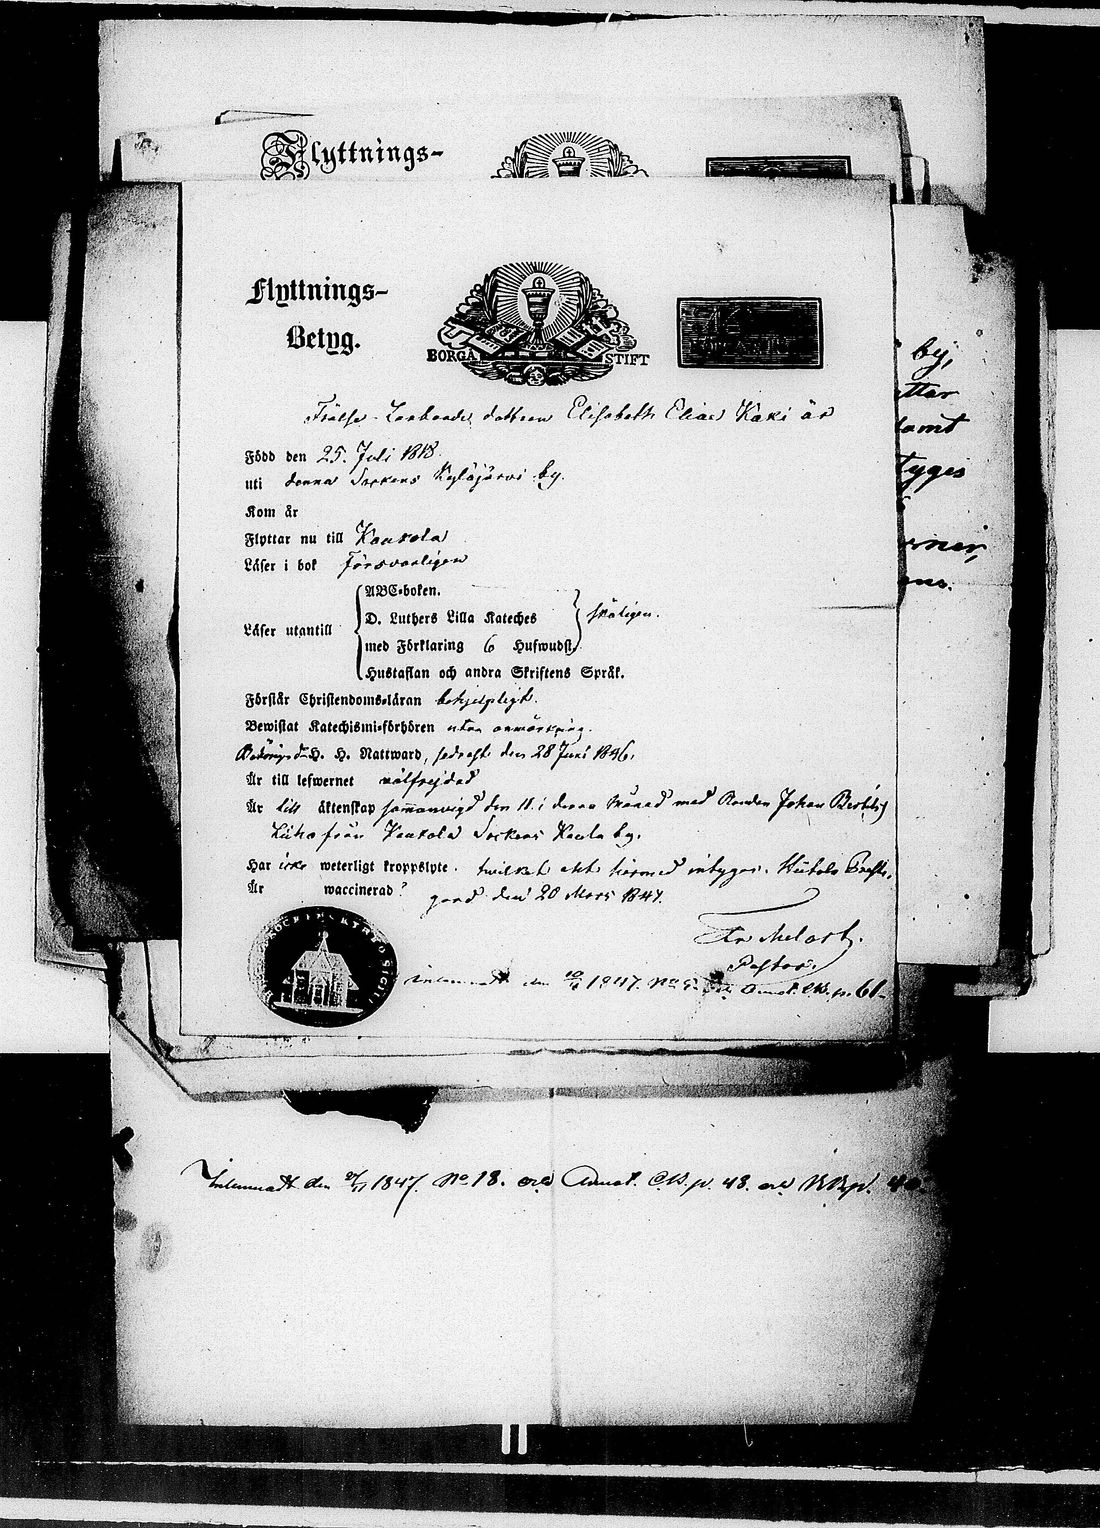 Flyttnings-
Flyttnings-
Betyg.
BORGÅ STIFT
Frälse-Landbonde dottren Elisabeth Elias Käki är
Född den 25. Juli 1818.
uti denna Sockens Kyläjärvi by.
Kom år
Flyttar nu till Kaukola
Läser i bok Försvarligen
ABC-boken.
D. Luthers Lilla Kateches
Läser utantill
skäligen.
med Förklaring 6 Hufwudst.
Hustaflan och andra Skriftens Språk.
Förstår Christendoms-läran behjelpligt.
Bewistat Katechismi-förhören utan anmärkning.
H. H. Nattward, sednast den 28 Juni 1846.
Är till lefwernet välfrejdad
Är till äktenskap sammanvigd den 11. i denna Månad med Bonden Johan
från Kaukola Sockens by.
Har icke weterligt kroppslyte. hvilket allt härmed intygar. Hiitola Prest-
Är waccinerad?
gård den 20 Mars 1847.
Melart.
Pastor.
SOCKEN KYRKO SIGILL
Inlemnadt den 1847. No Annot. C.B. p. 61.
by,
attar
samt
tyges
Inlemnadt den 1847. No 18. Annot. C.B. p. 48.